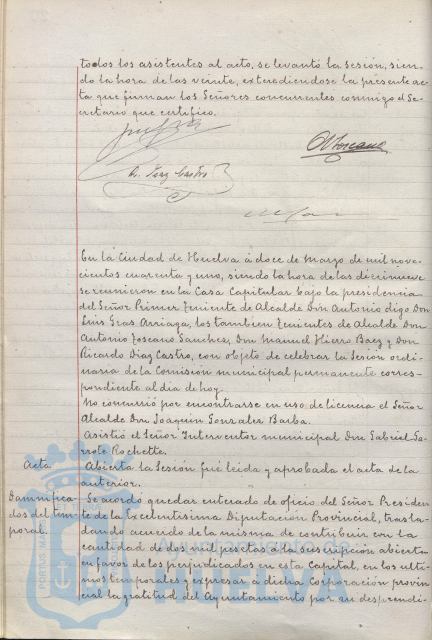 todos los asistentes al acto, se levantó la sesión, sien-
do la hora de las veinte, extendiendose la presente ac-
ta que firman los Señores concurrentes conmigo el Se-
cretario que certifico.
R. Diaz Castro
A Toscano
En la Ciudad de Huelva á doce de Marzo de mil nove-
cientos cuarenta y uno, siendo la hora de las diecinueve
se reunieron en la Casa Capitular bajo la presidencia
del Señor Primer Teniente de Alcalde Don Antonio digo Don
Luis Gras Arriaga, los tambien Tenientes de Alcalde Don
Antonio Toscano Sanchez, Don Manuel Hierro Baez y Don
Ricardo Diaz Castro, con objeto de celebrar la Sesión ordi-
naria de la Comisión municipal permanente corres-
pondiente al dia de hoy.
No concurrió por encontrarse en uso de licencia el Señor
Alcalde Don Joaquin Gonzalez Barba.
Asistió el Señor Interventor municipal Don Gabriel Ga-
rrote Rochette.
Acta. Abierta la Sesión fué leida y aprobada el acta de la
anterior.
Damnifica- Se acordó quedar enterado de oficio del Señor Presiden-
dos del tem- te de la Excelentisima Diputación Provincial, trasla-
poral. dando acuerdo de la misma de contribuir con la
cantidad de dos mil pesetas a la suscripción abierta
en favor de los perjudicados en esta Capital, en los ulti-
mos temporales y expresar á dicha Corporación provin-
cial la gratitud del Ayuntamiento por su desprendi-